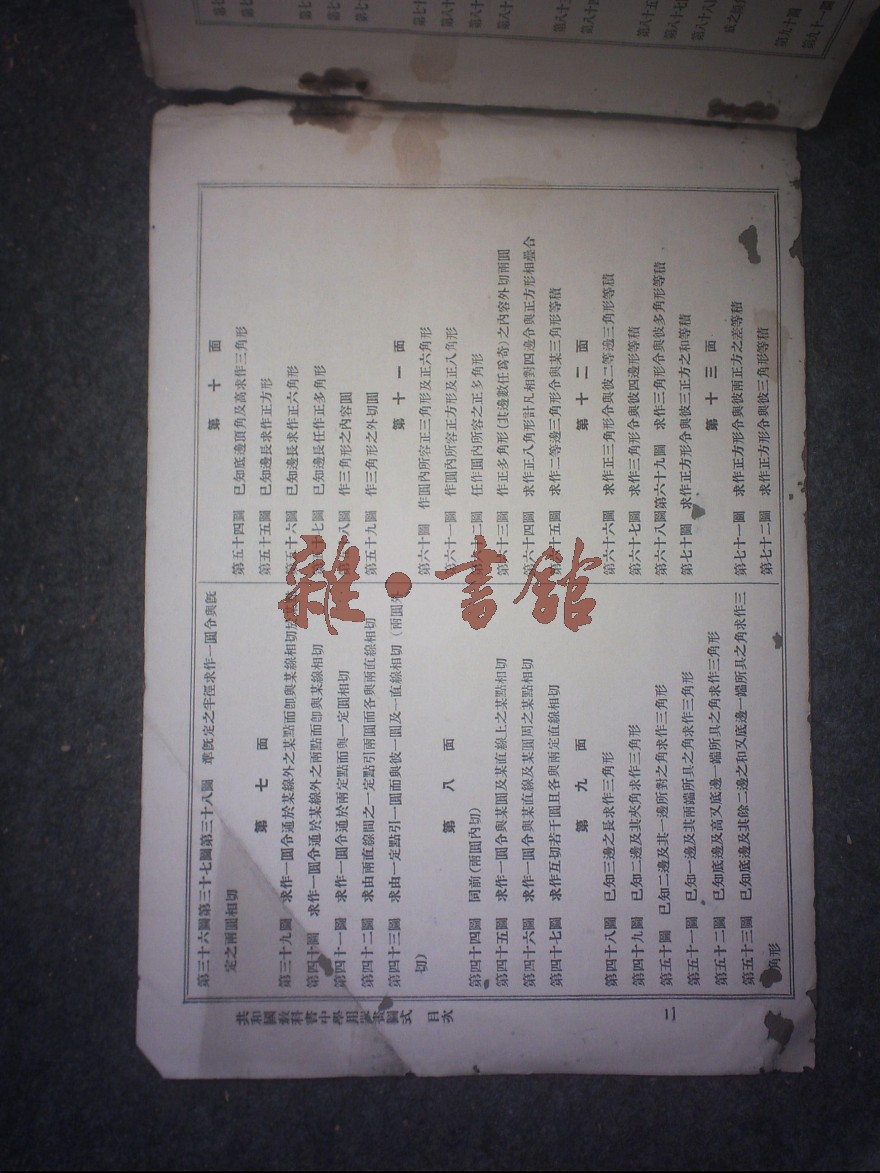 共和國教科書中學用器畫圖式　目次
二
第三十六圖第三十七圖第三十八圖　準旣定之半徑求作一圓令與旣
定之兩圓相切
第七面
第三十九圖　求作一圓令通於某線外之某點而卽與某線相切於
第四十圖　求作一圓令通於某線外之兩點而卽與某線相切
第四十一圖　求作一圓令通於兩定點而與一定圓相切
第四十二圖　求由兩直線間之一定點引兩圓而各與兩直線相切
第四十三圖　求由一定點引一圓而與彼一圓及一直線相切（兩圓外
切）
第八面
第四十四圖　同前（兩圓內切）
第四十五圖　求作一圓令與某圓及某直線上之某點相切
第四十六圖　求作一圓令與某直線及某圓周之某點相切
第四十七圖　求作互切若干圓且各與兩定直線相切
第九面
第四十八圖　已知三邊之長求作三角形
第四十九圖　已知二邊及其夾角求作三角形
第五十圖　已知二邊及其一邊所對之角求作三角形
第五十一圖　已知一邊及其兩端所具之角求作三角形
第五十二圖　已知底邊及高又底邊一端所具之角求作三角形
第五十三圖　已知底邊及其餘二邊之和又底邊一端所具之角求作三
角形
第十面
第五十四圖　已知底邊頂角及高求作三角形
第五十五圖　已知邊長求作正方形
第五十六圖　已知邊長求作正六角形
十七圖　已知邊長任作正多角形
八圖　作三角形之內容圓
第五十九圖　作三角形之外切圓
第十一面
第六十圖　作圓內所容正三角形及正六角形
第六十一圖　作圓內所容正方形及正八角形
二圖　任作圓內所容之正多角形
十三圖　作正多角形（其邊數任爲奇）之內容外切兩圓
第六十四圖　求作正八角形計凡相對四邊令與正方形相疊合
十五圖　求作二等邊三角形令與某三角形等積
第十二面
第六十六圖　求作正三角形令與彼二等邊三角形等積
第六十七圖　求作三角形令與彼四邊形等積
第六十八圖第六十九圖　求作三角形令與彼多角形等積
第七十圖　求作正方形令與彼三正方之和等積
第十三面
第七十一圖　求作正方形令與彼兩正方之差等積
第七十二圖　求作正方形令與彼三角形等積
雜·書館